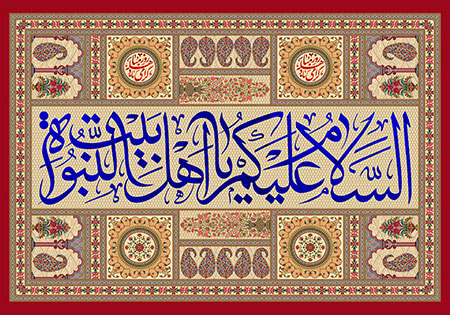 السَّلامُ عَلیکُم یا اَهلَ بَیتِ النُّبُوَّة